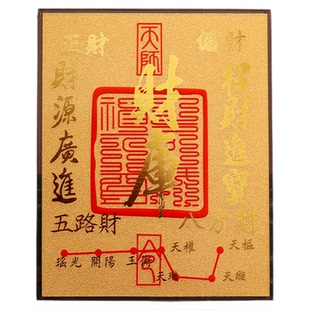 正財
天師
偏財
財源廣進
財庫
招財進寶
五路財
八方財
令
天權
天樞
瑤光
開陽
玉衡
天璇